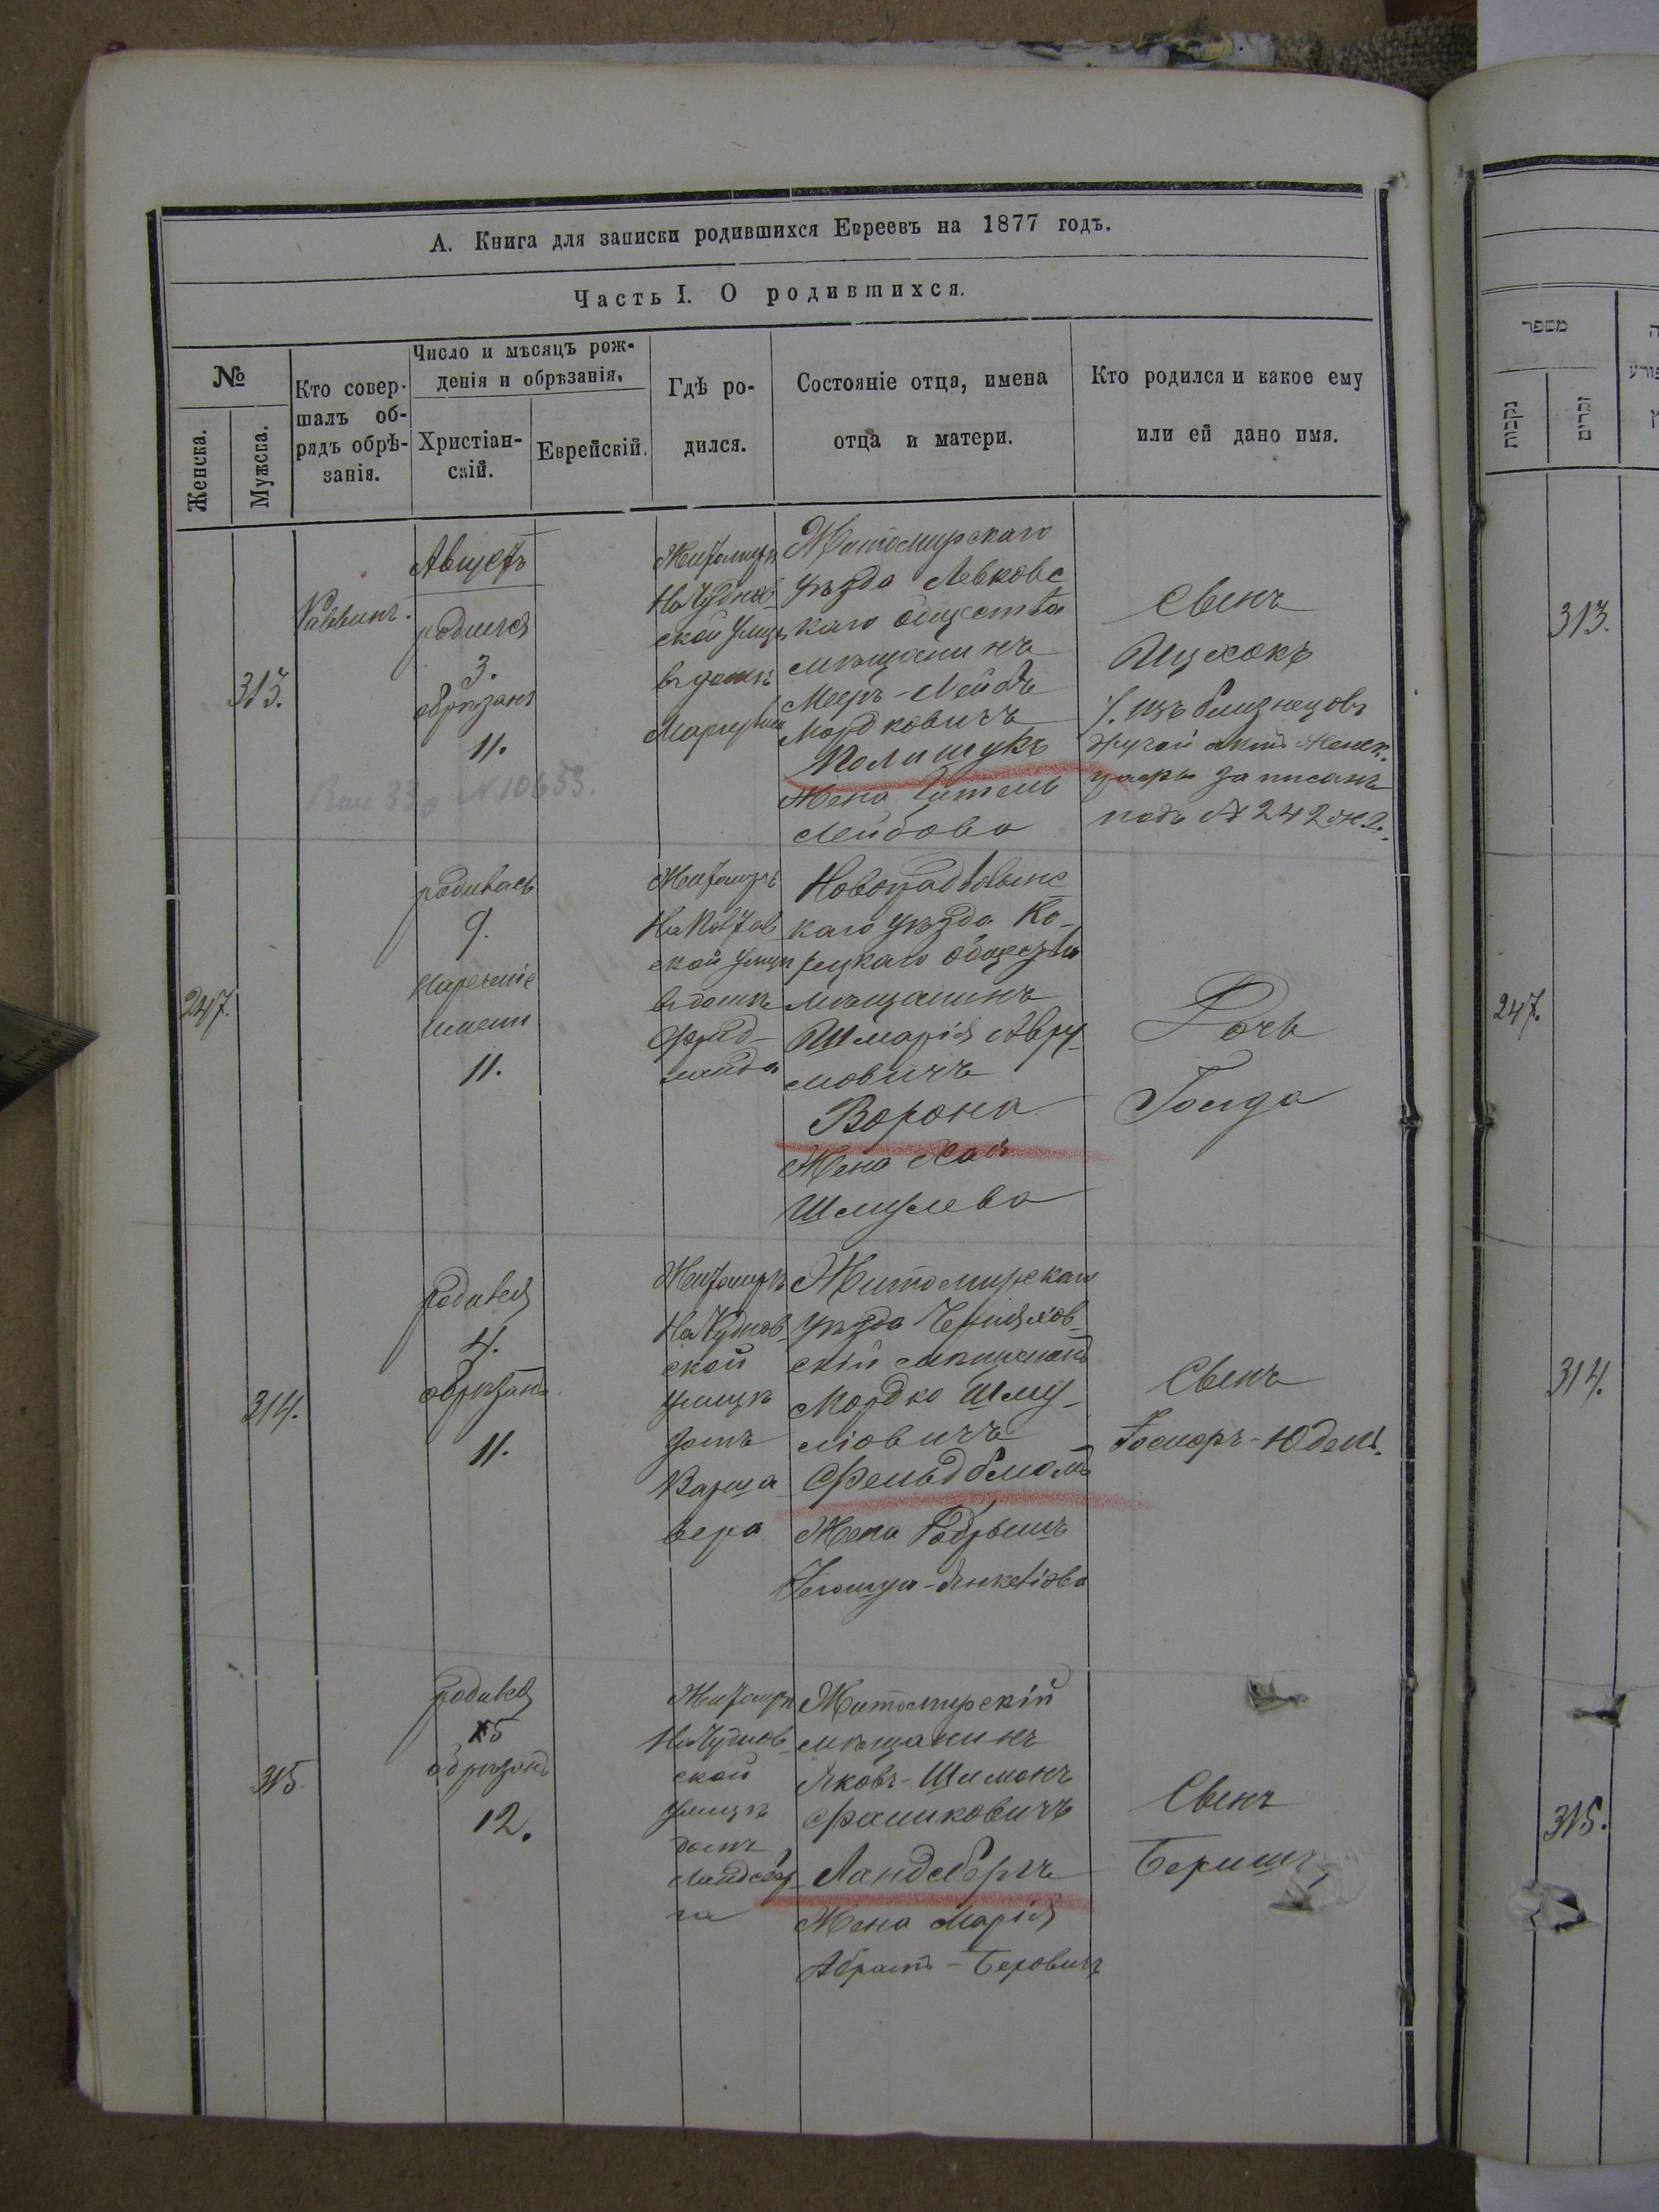 А. Книга для записки родившихся Евреевъ на 1877 годъ.
Часть I. О родившихся.
№
Женска.
Мужска.
Кто совер-
шалъ об-
рядъ обрѣ-
занія.
Число и мѣсяцъ рож-
денія и обрѣзанія.
Христіан-
скій.
Еврейскій.
Гдѣ ро-
дился.
Состояніе отца, имена
отца и матери.
Кто родился и какое ему
или ей дано имя.
313.
Раввинъ.
Августъ
родился
3.
обрѣзанъ
11.
№ 10653.
Житомирѣ
На Чуднов-
ской улицѣ
въ домѣ
Житомирскаго
уѣзда Левковс
каго общества
мѣщанинъ
Мееръ-Лейбъ
Мордковичъ
Полищукъ
Жена
Лейбова
Сынъ
Ицхокъ
изъ близнецовъ
другой
записанъ
подъ № 242
247.
родилась
9.
нареченіе
имени
11.
Житомирѣ
ской улицѣ
въ домѣ
Фрид-
ланда
Новоградволынс
каго уѣзда Ко-
рецкаго общества
мѣщанинъ
Шмарія Авру-
мовичъ
Ворона
Жена Хая
Шмулева
Дочь
Голда
314.
родился
4.
обрѣзанъ
11.
Житомирѣ
На Чуднов-
ской
улицѣ
домъ
Варша-
вера
Житомирскаго
уѣзда Черняхов-
скій мѣщанинъ
Мордко Шму-
ліовичъ
Фельдблюмъ
Жена
Сынъ
-Юдель.
315.
родился
5
обрѣзанъ
12.
Житомирѣ
На Чуднов-
ской
улицѣ
домъ
Ландсбер-
га
Житомирскій
мѣщанинъ
Яковъ-Шимонъ
Фашковичъ
Ландсбергъ
Жена Марія
Абрамъ-Беровичъ
Сынъ
Беришъ
מספר
נקבות
זכרים
313.
247.
314.
315.